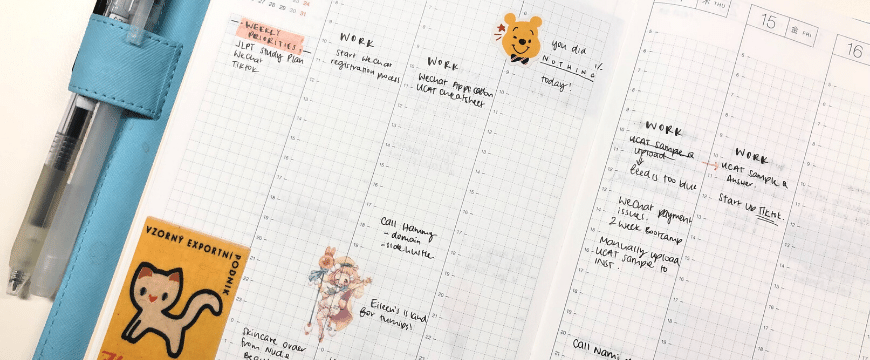 WEEKLY
PRIORITIES
JLPT Study Plan
WeChat
Tiktok
WORK
start WeChat
registration process
WORK
WeChat Application
UCAT cheatsheet
you did
NOTHING
today!
Call Hammy
- domain
- side hustle
Eileen's island
for turnips!
skincare order
from Nude
VZORNÝ EXPORTNÍ
PODNIK
THU
WORK
UCAT sample Q
upload
feed is too blue
WeChat payment
issues.
2 week Bootcamp
Manually upload
UCAT sample to
INST.
Call Nami
15
金 FRI
WORK
UCAT sample Q
Answer.
Start up Tiktok.
16